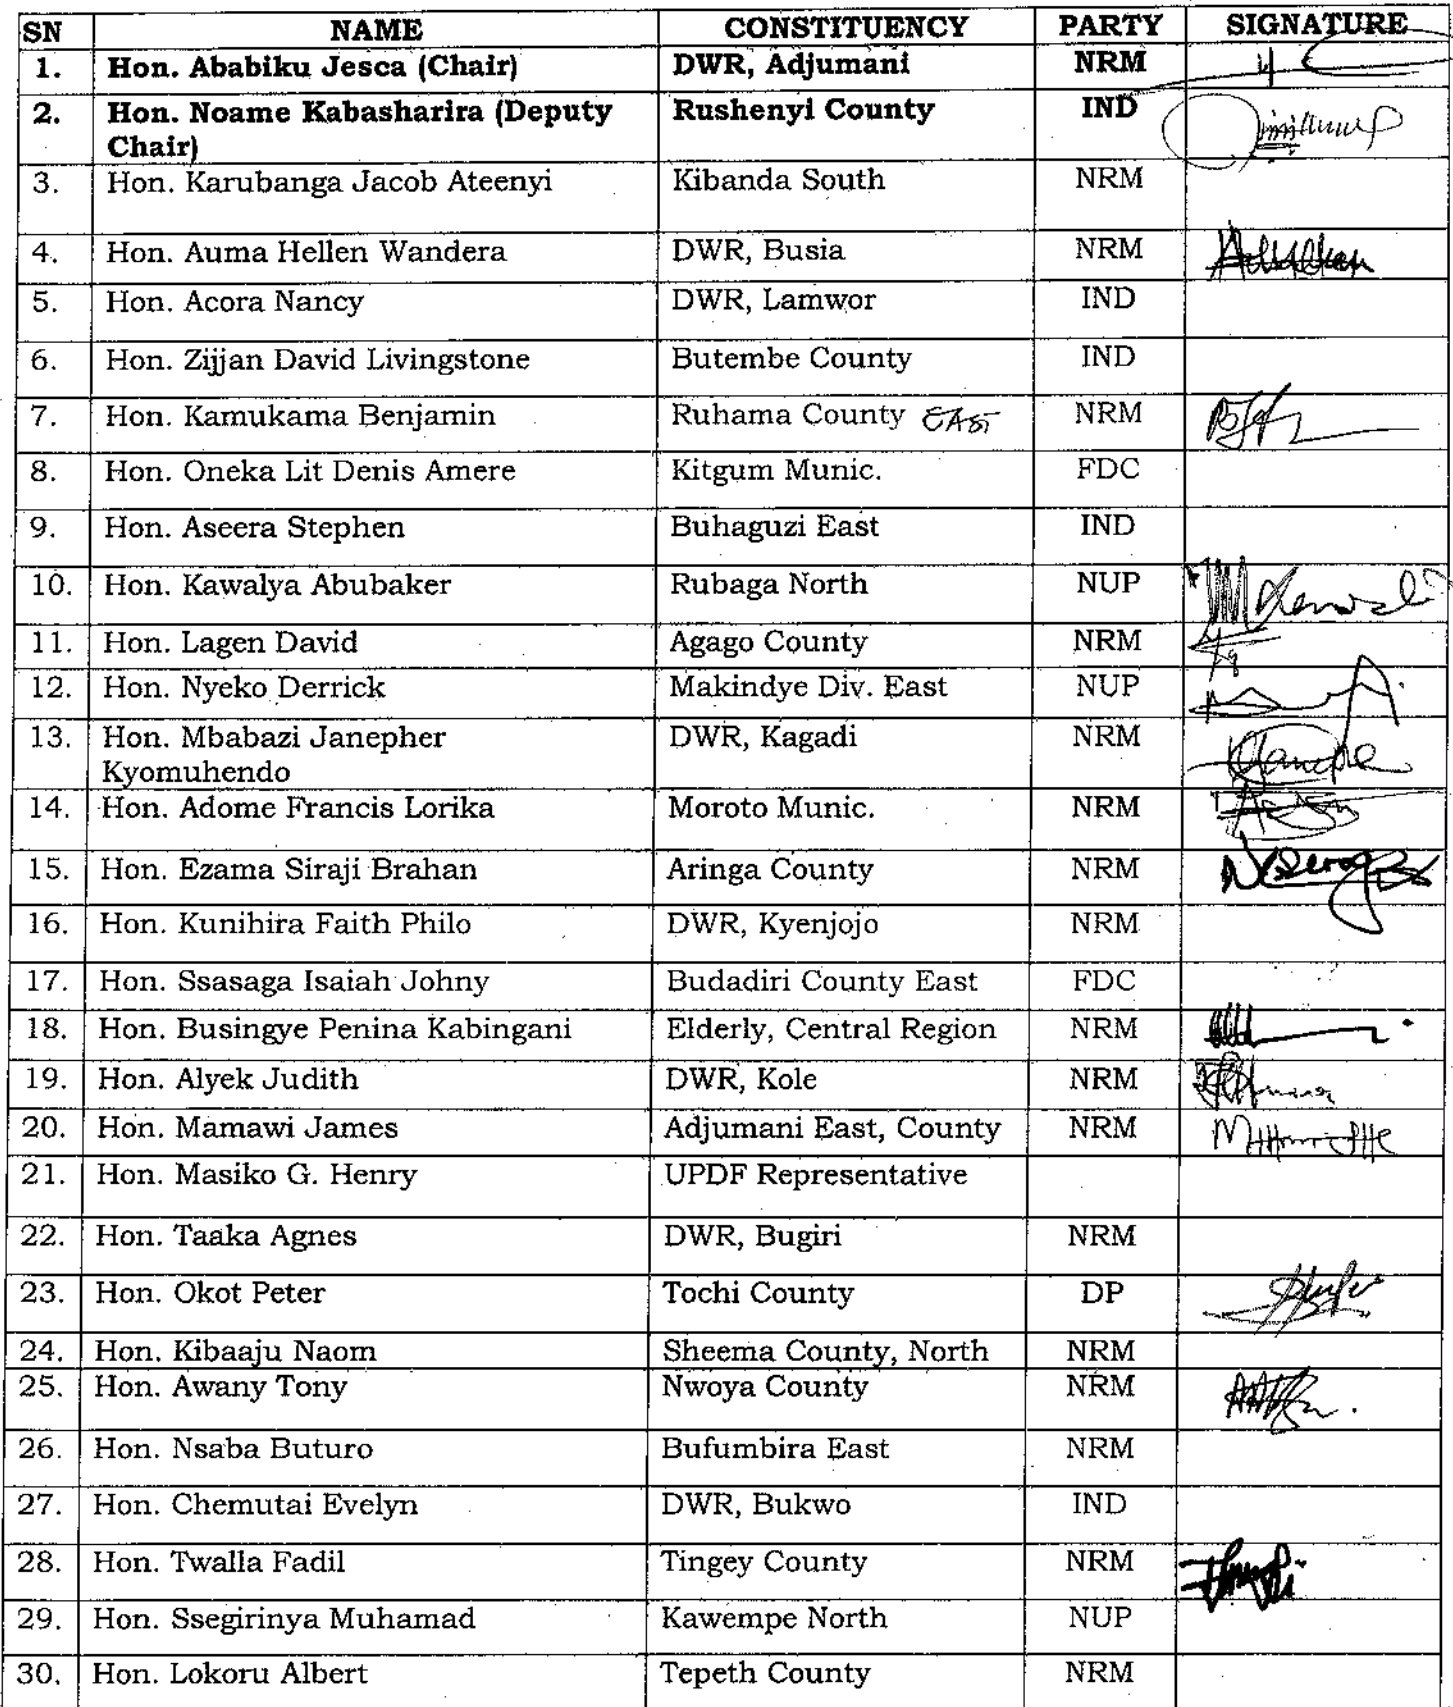 SN NAME CONSTITUENCY PARTY SIGNATURE
1. Hon. Ababiku Jesca (Chair) DWR, Adjumani NRM
2. Hon. Noame Kabasharira (Deputy Chair) Rushenyi County IND
3. Hon. Karubanga Jacob Ateenyi Kibanda South NRM
4. Hon. Auma Hellen Wandera DWR, Busia NRM
5. Hon. Acora Nancy DWR, Lamwor IND
6. Hon. Zijjan David Livingstone Butembe County IND
7. Hon. Kamukama Benjamin Ruhama County EAST NRM
8. Hon. Oneka Lit Denis Amere Kitgum Munic. FDC
9. Hon. Aseera Stephen Buhaguzi East IND
10. Hon. Kawalya Abubaker Rubaga North NUP
11. Hon. Lagen David Agago County NRM
12. Hon. Nyeko Derrick Makindye Div. East NUP
13. Hon. Mbabazi Janepher Kyomuhendo DWR, Kagadi NRM
14. Hon. Adome Francis Lorika Moroto Munic. NRM
15. Hon. Ezama Siraji Brahan Aringa County NRM
16. Hon. Kunihira Faith Philo DWR, Kyenjojo NRM
17. Hon. Ssasaga Isaiah Johny Budadiri County East FDC
18. Hon. Busingye Penina Kabingani Elderly, Central Region NRM
19. Hon. Alyek Judith DWR, Kole NRM
20. Hon. Mamawi James Adjumani East, County NRM
21. Hon. Masiko G. Henry UPDF Representative
22. Hon. Taaka Agnes DWR, Bugiri NRM
23. Hon. Okot Peter Tochi County DP
24. Hon. Kibaaju Naom Sheema County, North NRM
25. Hon. Awany Tony Nwoya County NRM
26. Hon. Nsaba Buturo Bufumbira East NRM
27. Hon. Chemutai Evelyn DWR, Bukwo IND
28. Hon. Twalla Fadil Tingey County NRM
29. Hon. Ssegirinya Muhamad Kawempe North NUP
30. Hon. Lokoru Albert Tepeth County NRM